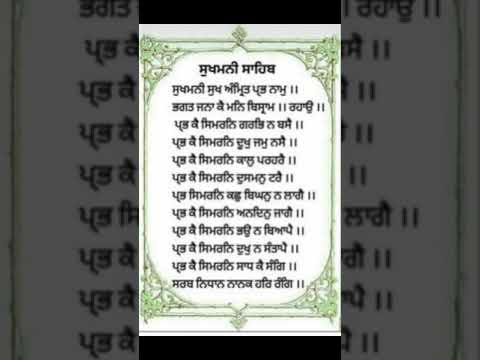 ਸੁਖਮਨੀ ਸਾਹਿਬ
ਸੁਖਮਨੀ ਸੁਖ ਅੰਮ੍ਰਿਤ ਪ੍ਰਭ ਨਾਮੁ ।।
ਭਗਤ ਜਨਾ ਕੈ ਮਨਿ ਬਿਸ੍ਰਾਮ ।। ਰਹਾਉ ।।
ਪ੍ਰਭ ਕੈ ਸਿਮਰਨਿ ਗਰਭਿ ਨ ਬਸੈ ।।
ਪ੍ਰਭ ਕੈ ਸਿਮਰਨਿ ਦੂਖੁ ਜਮੁ ਨਸੈ ।।
ਪ੍ਰਭ ਕੈ ਸਿਮਰਨਿ ਕਾਲੁ ਪਰਹਰੈ ।।
ਪ੍ਰਭ ਕੈ ਸਿਮਰਨਿ ਦੁਸਮਨੁ ਟਰੈ ।।
ਪ੍ਰਭ ਸਿਮਰਨਿ ਕਛੁ ਬਿਘਨੁ ਨ ਲਾਗੈ ।।
ਪ੍ਰਭ ਕੈ ਸਿਮਰਨਿ ਅਨਦਿਨੁ ਜਾਗੈ ।।
ਪ੍ਰਭ ਕੈ ਸਿਮਰਨਿ ਭਉ ਨ ਬਿਆਪੈ ।।
ਪ੍ਰਭ ਕੈ ਸਿਮਰਨਿ ਦੁਖੁ ਨ ਸੰਤਾਪੈ ।।
ਪ੍ਰਭ ਕੈ ਸਿਮਰਨਿ ਸਾਧ ਕੈ ਸੰਗਿ ।।
ਸਰਬ ਨਿਧਾਨ ਨਾਨਕ ਹਰਿ ਰੰਗਿ ।।